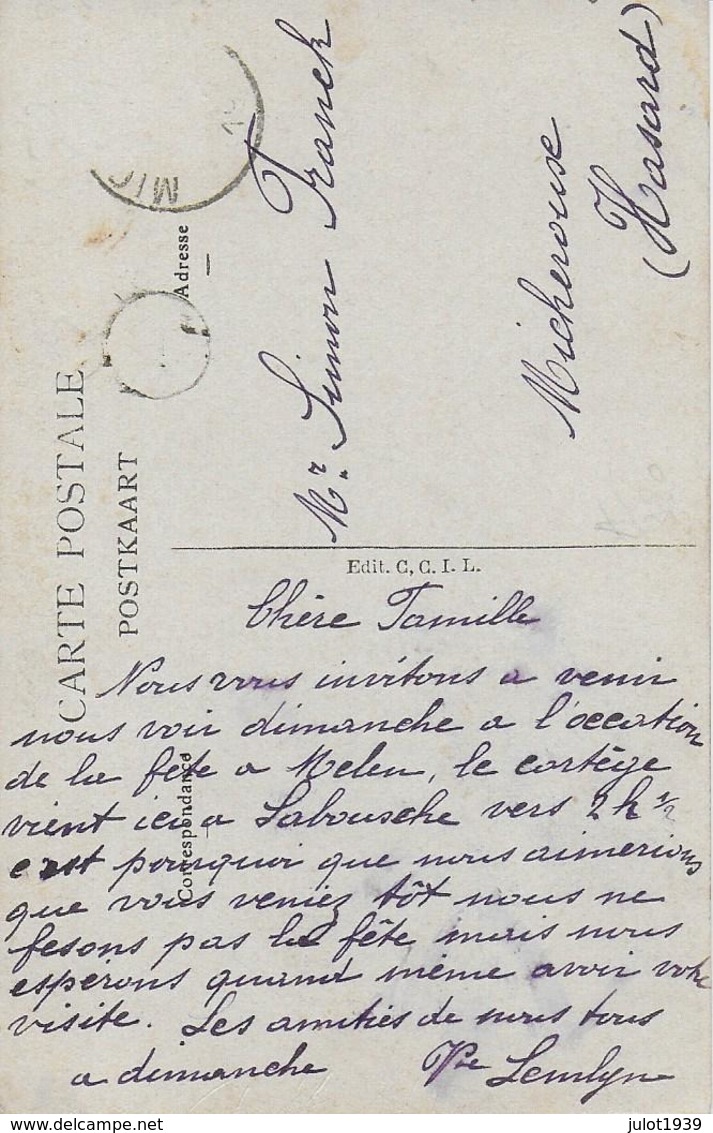 CARTE POSTALE
POSTKAART
Adresse
MIC
Mr. Simon Franck
Micheroux
(Hasard)
Correspondance
Edit. C, C. I. L.
Chère Famille
Nous vous invitons a venir
nous voir dimanche a l'occation
de la fête a Melen, le cortège
vient ici a Labousche vers 2 h 1/2
c'est pourquoi que nous aimerions
que vous veniez tôt nous ne
fesons pas la fête mais nous
esperons quand même avoir votre
visite. Les amitiés de nous tous
a dimanche Vve Lemlyn
delcampe.net
julot1939